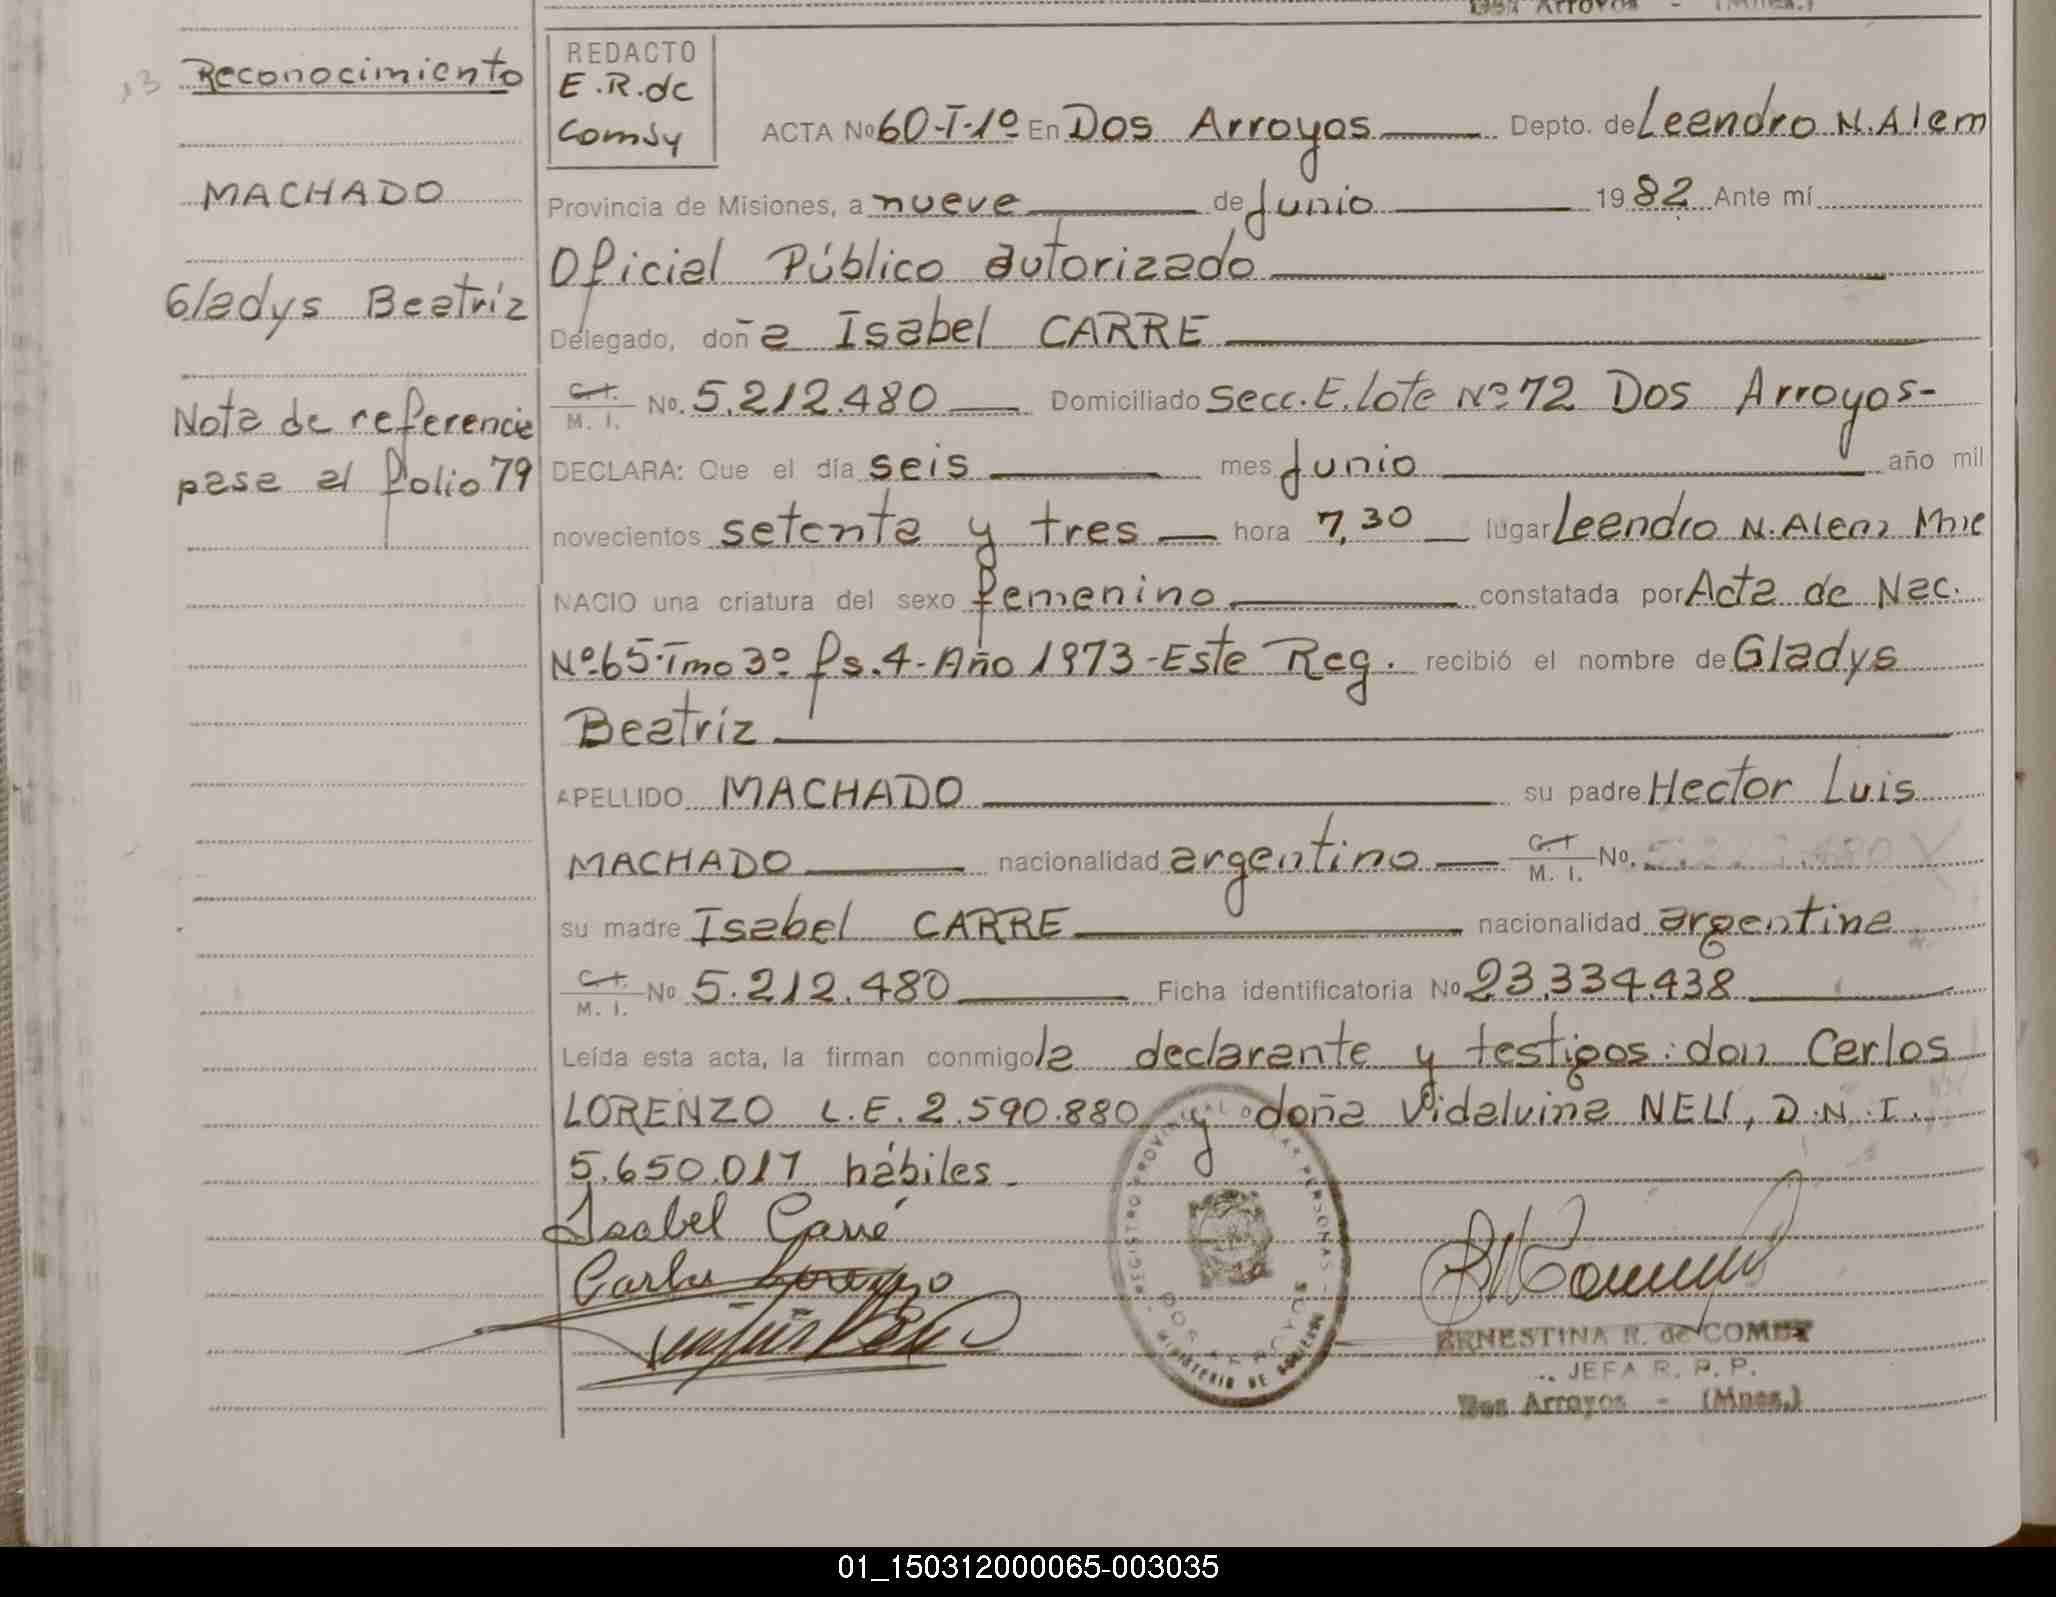 Reconocimiento
MACHADO
Gladys Beatriz
Nota de referencia
pasa al folio 79
REDACTO
E.R.de
Comsy
ACTA No 60-T-1º En Dos Arroyos Depto. de Leandro N. Alem
Provincia de Misiones, a nueve de Junio 1982 Ante mí
Oficial Público autorizado
Delegado, doña Isabel CARRE
C.I. M. I. No. 5.212.480 Domiciliado Secc. E. Lote Nº 72 Dos Arroyos-
DECLARA: Que el día seis mes Junio año mil
novecientos setenta y tres hora 7,30 lugar Leandro N. Alem
NACIO una criatura del sexo femenino constatada por Acta de Nac.
Nº 65-Tmo 3º fs. 4- Año 1973-Este Reg. recibió el nombre de Gladys
Beatriz
APELLIDO MACHADO su padre Hector Luis
MACHADO nacionalidad argentino C.I. M. I. No.
su madre Isabel CARRE nacionalidad argentina
C.I. M. I. No 5.212.480 Ficha identificatoria No 23.334.438
Leída esta acta, la firman conmigo la declarante y testigos: don Carlos
LORENZO L.E. 2.590.880 y doña Vidalvina NELI, D.N.I.
5.650.017 hábiles.
Isabel Carré
Carlos Lorenzo
REGISTRO PROVINCIAL DE LAS PERSONAS
DOS ARROYOS
MINISTERIO DE GOBIERNO
ERNESTINA R. de COMSY
JEFA R. P. P.
Dos Arroyos - (Mnes.)
01_150312000065-003035